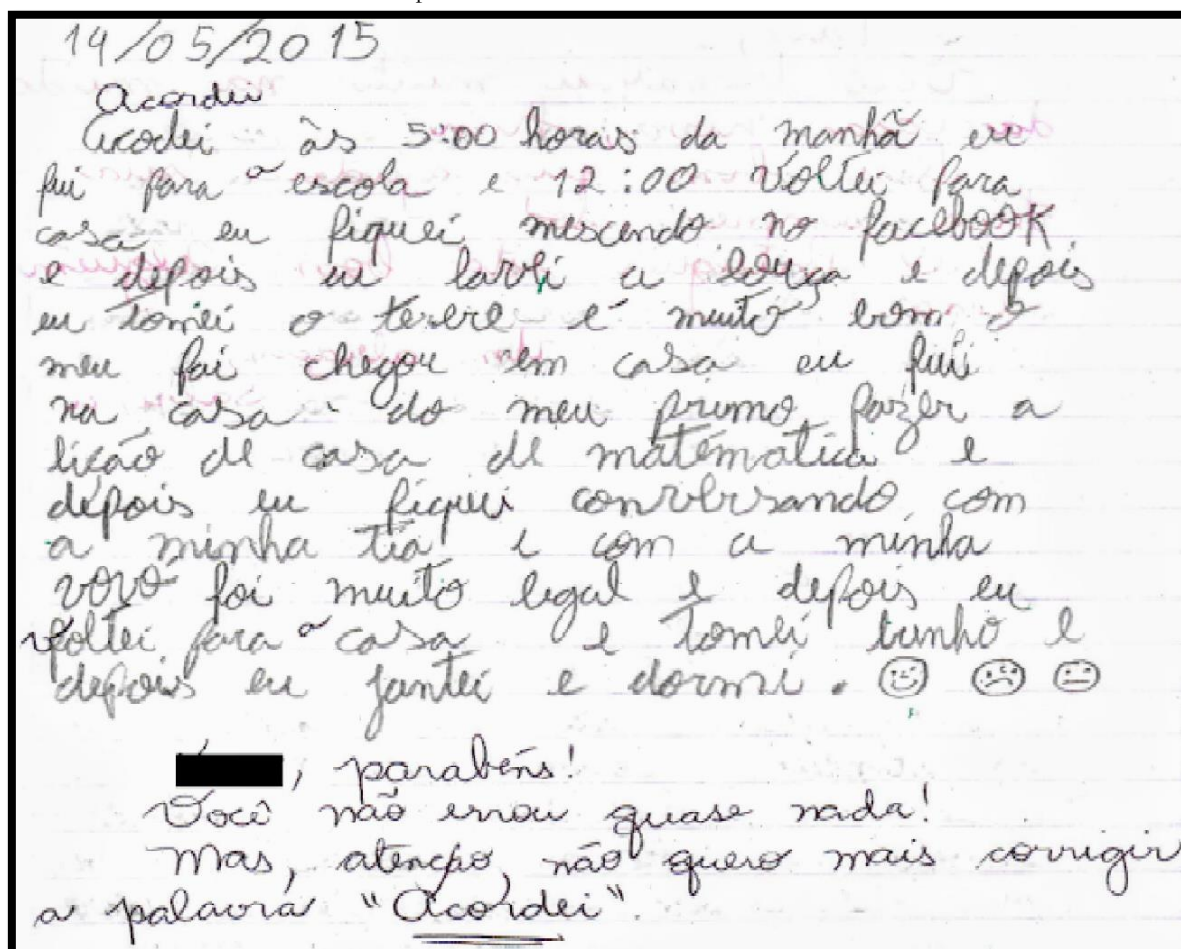 14/05/2015
Acordei
Acodei às 5:00 horas da manhã eu
fui para a escola e 12:00 voltei para
casa eu fiquei mexcendo no facebook
e depois eu lavei a louça e depois
eu tomei o terere é muito bom o
meu pai chegou em casa eu fui
na casa do meu primo fazer a
lição de casa de matématica e
depois eu fiquei conversando com
a minha tia e com a minha
vovó foi muito legal e depois eu
voltei para a casa e tomei banho e
depois eu jantei e dormi.
, parabéns!
Você não errou quase nada!
Mas, atenção, não quero mais corrigir
a palavra "Acordei".